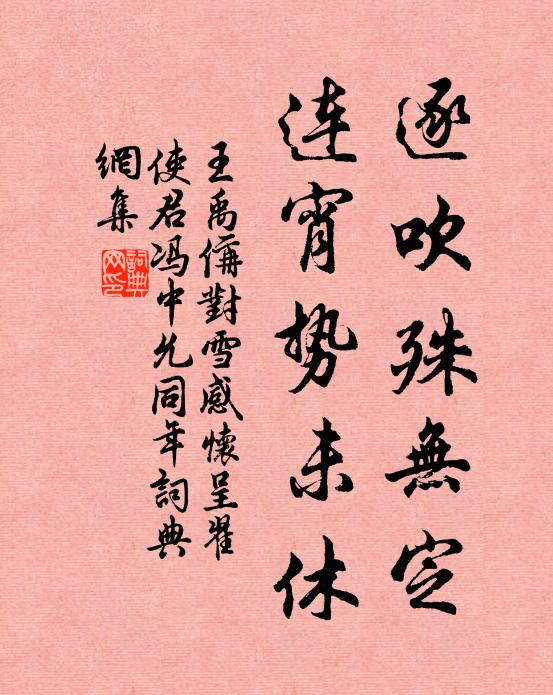 逐吹殊無定
连宵势未休
王禹偁對雪感懷呈翟
使君冯中允同年詞典
網集
詞典
网印